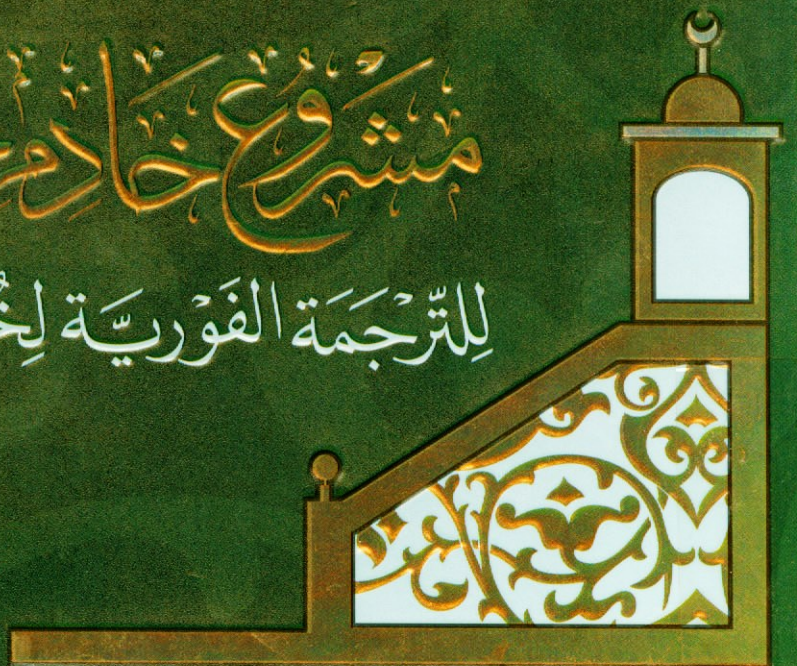 مشروع خادم
للترجمة الفورية